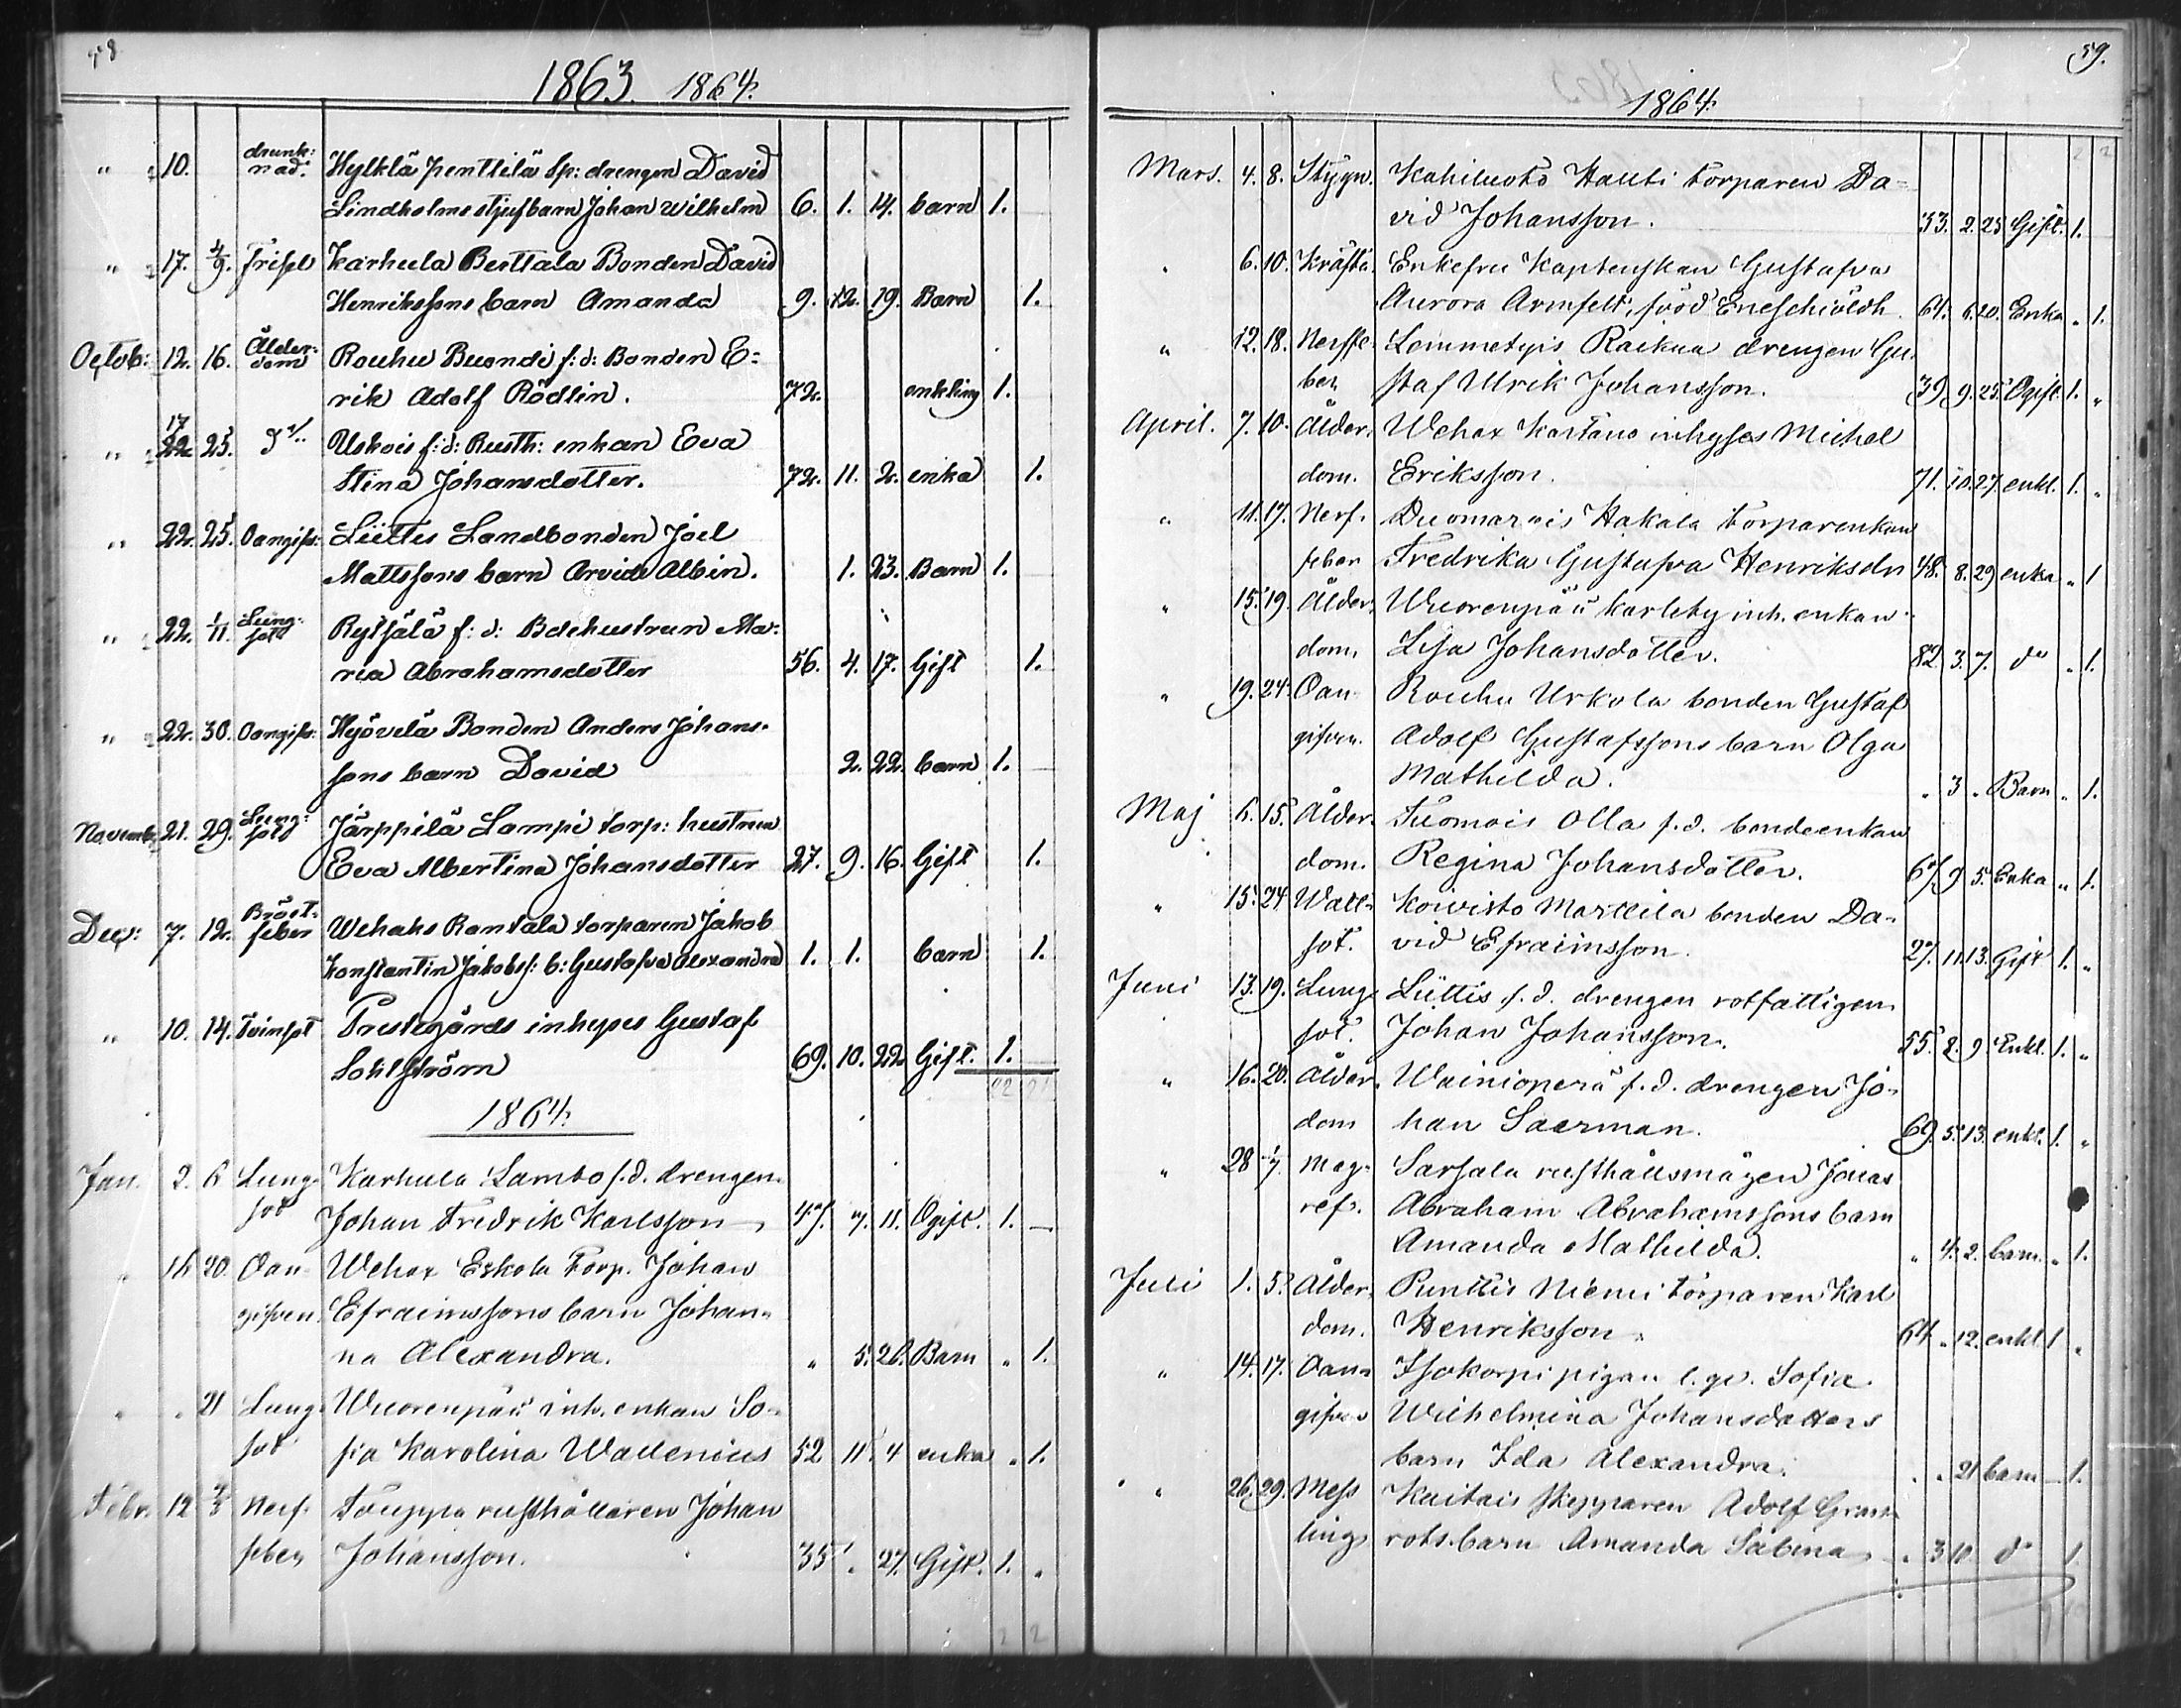 58
1863. 1864.
" 10. drunk: Hylklä Penttilä sp: drengen David
nad. Lindholms stjufbarn Johan Wilhelm 6. 1. 14. barn 1.
" 17. 4/9. Frisel Karhula Berttala Bonden David
Henrikssons barn Amanda 9. 12. 19. Barn 1.
Octob: 12. 16. Ålder- Rouhu Buondi f: d: Bonden E-
dom rik Adolf Rödlin. 72. enkling 1.
17
" 22. 25. d:o Uskois f: d: Rusth: enkan Eva
Stina Johansdotter. 72. 11. 2. enka 1.
" 22. 25. Oangifv: Liittes Landbonden Joel
Mattssons barn Arvid Albin. 1. 23. Barn 1.
" 22. 1/11. Lung- Rytsälä f: d: Bdehustrun Ma-
sot ria Abrahamsdotter 56. 4. 17. Gift 1.
" 22. 30. Oangifv: Hyövelä Bonden Anders Johans-
sons barn David 2. 22. barn 1.
Novemb: 21. 29. Lung- Järppilä Lampi torp: hustrun
sot Eva Albertina Johansdotter 27. 9. 16. Gift 1.
Dec: 7. 12. Bröst- Wehaks Rantala torparen Jakob
feber Konstantin Jakobss: b: Gustafva Alexandra 1. 1. barn 1.
" 10. 14. Tvinsot Prestegårds inhyses Gustaf
Sohlström 69. 10. 22 Gift. 1.
22 21
1864.
Jan. 2. 6 Lung- Karhula Lambo f. d. drengen
sot Johan Fredrik Karlsson 47. 7. 11. Ogift. 1. —
" 16 20. Oan- Wehax Eskola Torp. Johan
gifven Efraimssons barn Johan-
na Alexandra. " 5. 26. Barn " 1.
" " 21 Lung- Wuorenpää inh. enkan So-
sot fia Karolina Wallenius 52 11. 4 enka " 1.
Febr. 12 2/3 Nerf- Touppa rusthållaren Johan
feber Johansson. 35 " 27. Gift. 1. "
2 2
59.
1864.
Mars. 4. 8. Stygn. Kahiluoto Hauti torparen Da-
vid Johansson. 33. 2. 25 Gift. 1.
" 6. 10. Kräfta. Enkefru Kaptenskan Gustafva
Aurora Armfelt, född Eneschiöldh. 64. 6. 20. Enka " 1.
" 12. 18. Nerffe- Lemmetyis Raikua drengen Gu-
ber staf Ulrik Johansson. 39. 9. 25. Ogift. 1. "
April. 7. 10. Ålder- Wehax Kartano inhyses Michel
dom. Eriksson. 71. 10. 27. enkl. 1. "
" 11. 17. Nerf- Duomarnis Hakala torparenkan
feber Fredrika Gustafva Henriksdr 48. 8. 29 enka " 1
" 15. 19. Ålder- Wuorenpää Karleby inh. enkan
dom. Lisa Johansdotter. 82. 3. 7. do " 1.
" 19. 24. Oan- Rouhu Urkola bonden Gustaf
gifven. Adolf Gustafssons barn Olga
Mathilda. " 3 " Barn " 1.
Maj 6. 15. Ålder- Tuomois Olla f. d. bondeenkan
dom. Regina Johansdotter. 67. 9 5. Enka " 1.
" 15. 24. Watt- Koivisto Marttila bonden Da-
sot. vid Efraimsson. 27. 11. 13. Gift 1. "
Juni 13. 19. Lung- Liittis f. d. drengen rotfattigen
sot. Johan Johansson. 55. 2. 9. Enkl. 1. "
" 16. 20. Ålder- Wainionperä f. d. drengen Jo-
dom han Saerman. 69. 5. 13. enkl. 1. "
" 28 1/7. Mag- Sarsala rusthållsmågen Jonas
ref. Abraham Abrahamssons barn
Amanda Mathilda. " 4. 2. barn. " 1.
Juli 1. 5. Ålder- Punttis Niemi torparen Karl
dom. Henriksson. 64. " 12. enkl 1 "
" 14. 17. Oan- Isokorpi pigan l. gr. Sofia
gifven Wilhelmina Johansdotters
barn Ida Alexandra. " " 21 barn — 1.
" 26. 29. Mess- Kuitais skepparen Adolf Gran-
ling rots barn Amanda Sabina " 3 10 do 1.